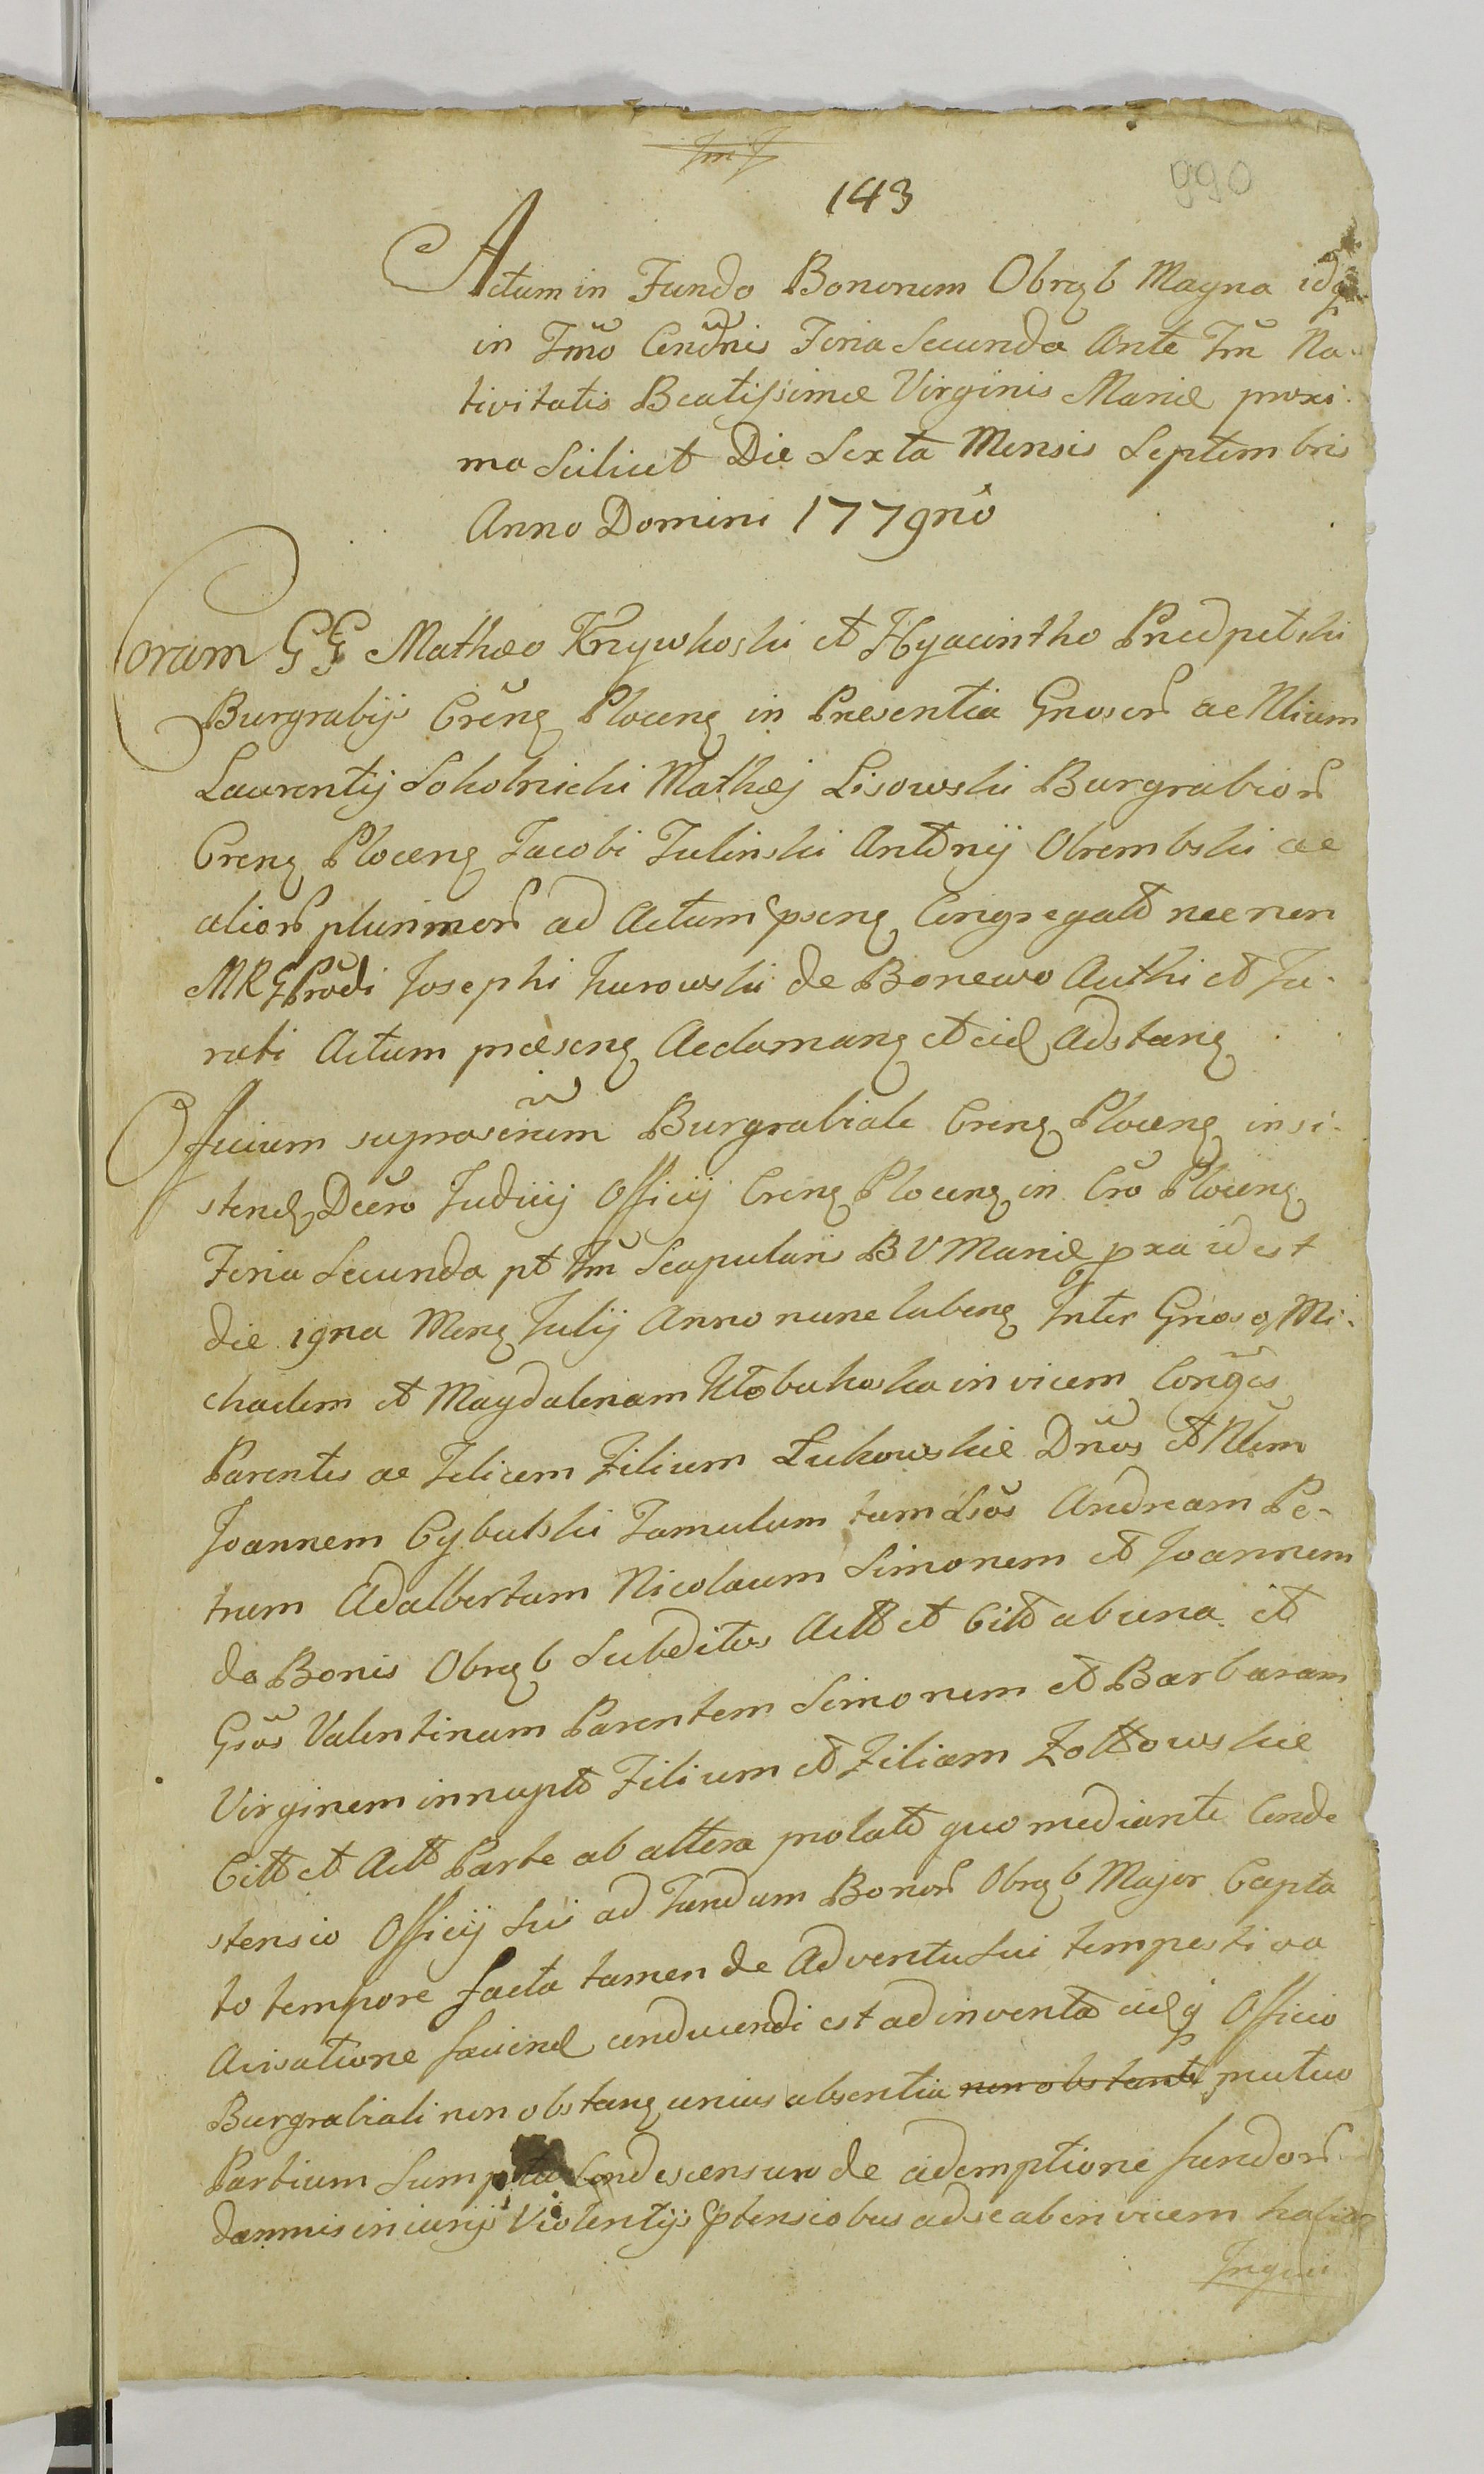 143
990
Actum in Fundo Bonorum Obręb Magna idq
in Tmo Cendnis Feria Secunda Ante Fm Na-
tivitatis Beatissimæ Virginis Mariæ proxi-
ma Scilicet Die Sexta Mensis Septembris
Anno Domini 1779no
Coram GG Mathæo Krzywkoski et Hyacintho Przedpelski
Burgrabijs Crens Plocens in Presentia Gnosor ac Nlium
Laurentij Sokolnicki Mathæj Lisowski Burgrabior
Crens Plocens Jacobi Julinski Antonij Obrembski ac
alior plurimor ad Actum psens Congregatt necnon
MRG Prodi Josephi Kurowski de Bonewo Authi et Ju-
rati Actum præsens Acclamans et eid Adstans
Officium suprascrum Burgrabiale Crens Plocens insi-
stend Decro Judicij Officij Crens Plocens in Cro Plocens
Feria Secunda pt Fm Scapularis BV Mariæ pxa id est
die 19na Mens Julij Anno nunc labens Inter Gnosos Mi-
chaelem et Magdalenam Kłobukoska invicem Conges
Parentes ac Felicem Filium Łukowskie Dnos et Nlem
Joannem Cybulski Famulum tum Lsos Andream Pe-
trum Adalbertum Nicolaum Simonem et Joannem
de Bonis Obręb Subditos Actt et Citt ab una et
Gsos Valentinum Parentem Simonem et Barbaram
Virginem innuptt Filium et Filiam Zołtowskie
Citt et Actt Parte ab altera prolatt quo mediante Conde
stensio Officij Sui ad Fundum Bonor Obręb Major Capta
to tempore facta tamen de Adventu Sui tempestiva
Avisatione faciend conducendi est adinventa eidq Officio
Burgrabiali non obstans unius absentia non obstante mutuo
Partium Sumpto Condescensuro de ademptione fundor
damnis injurijs Violentijs ptensiobus ad se ab invicem habitis